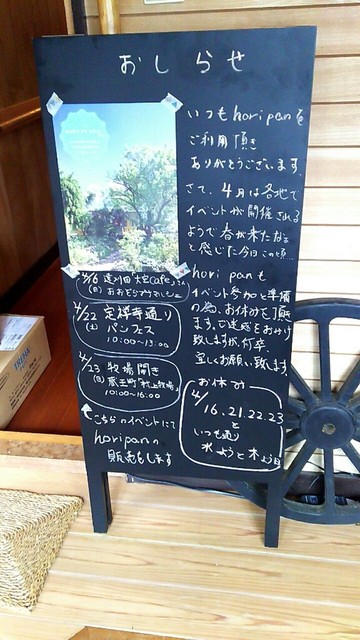 おしらせ
いつもhoripanを
ご利用頂き
ありがとうございます。
さて、4月は各地で
イベントが開催される
ようで春が来たなぁ
と感じた今日この頃…
horipanも
イベント参加と準備
の為、お休みを頂戴し
ます。ご迷惑をおかけ
致しますが、何卒、
宜しくお願い致します。
4/16
(日)
4/22 定禅寺通り
(土) パンフェス
10:00〜15:00
4/23 牧場開き
(日) 蔵王町「村上牧場」
10:00〜16:00
こちらのイベントにて
horipanの
販売をします
お休み
4/16.21.22.23
と
いつも通り
水ようと木よう日